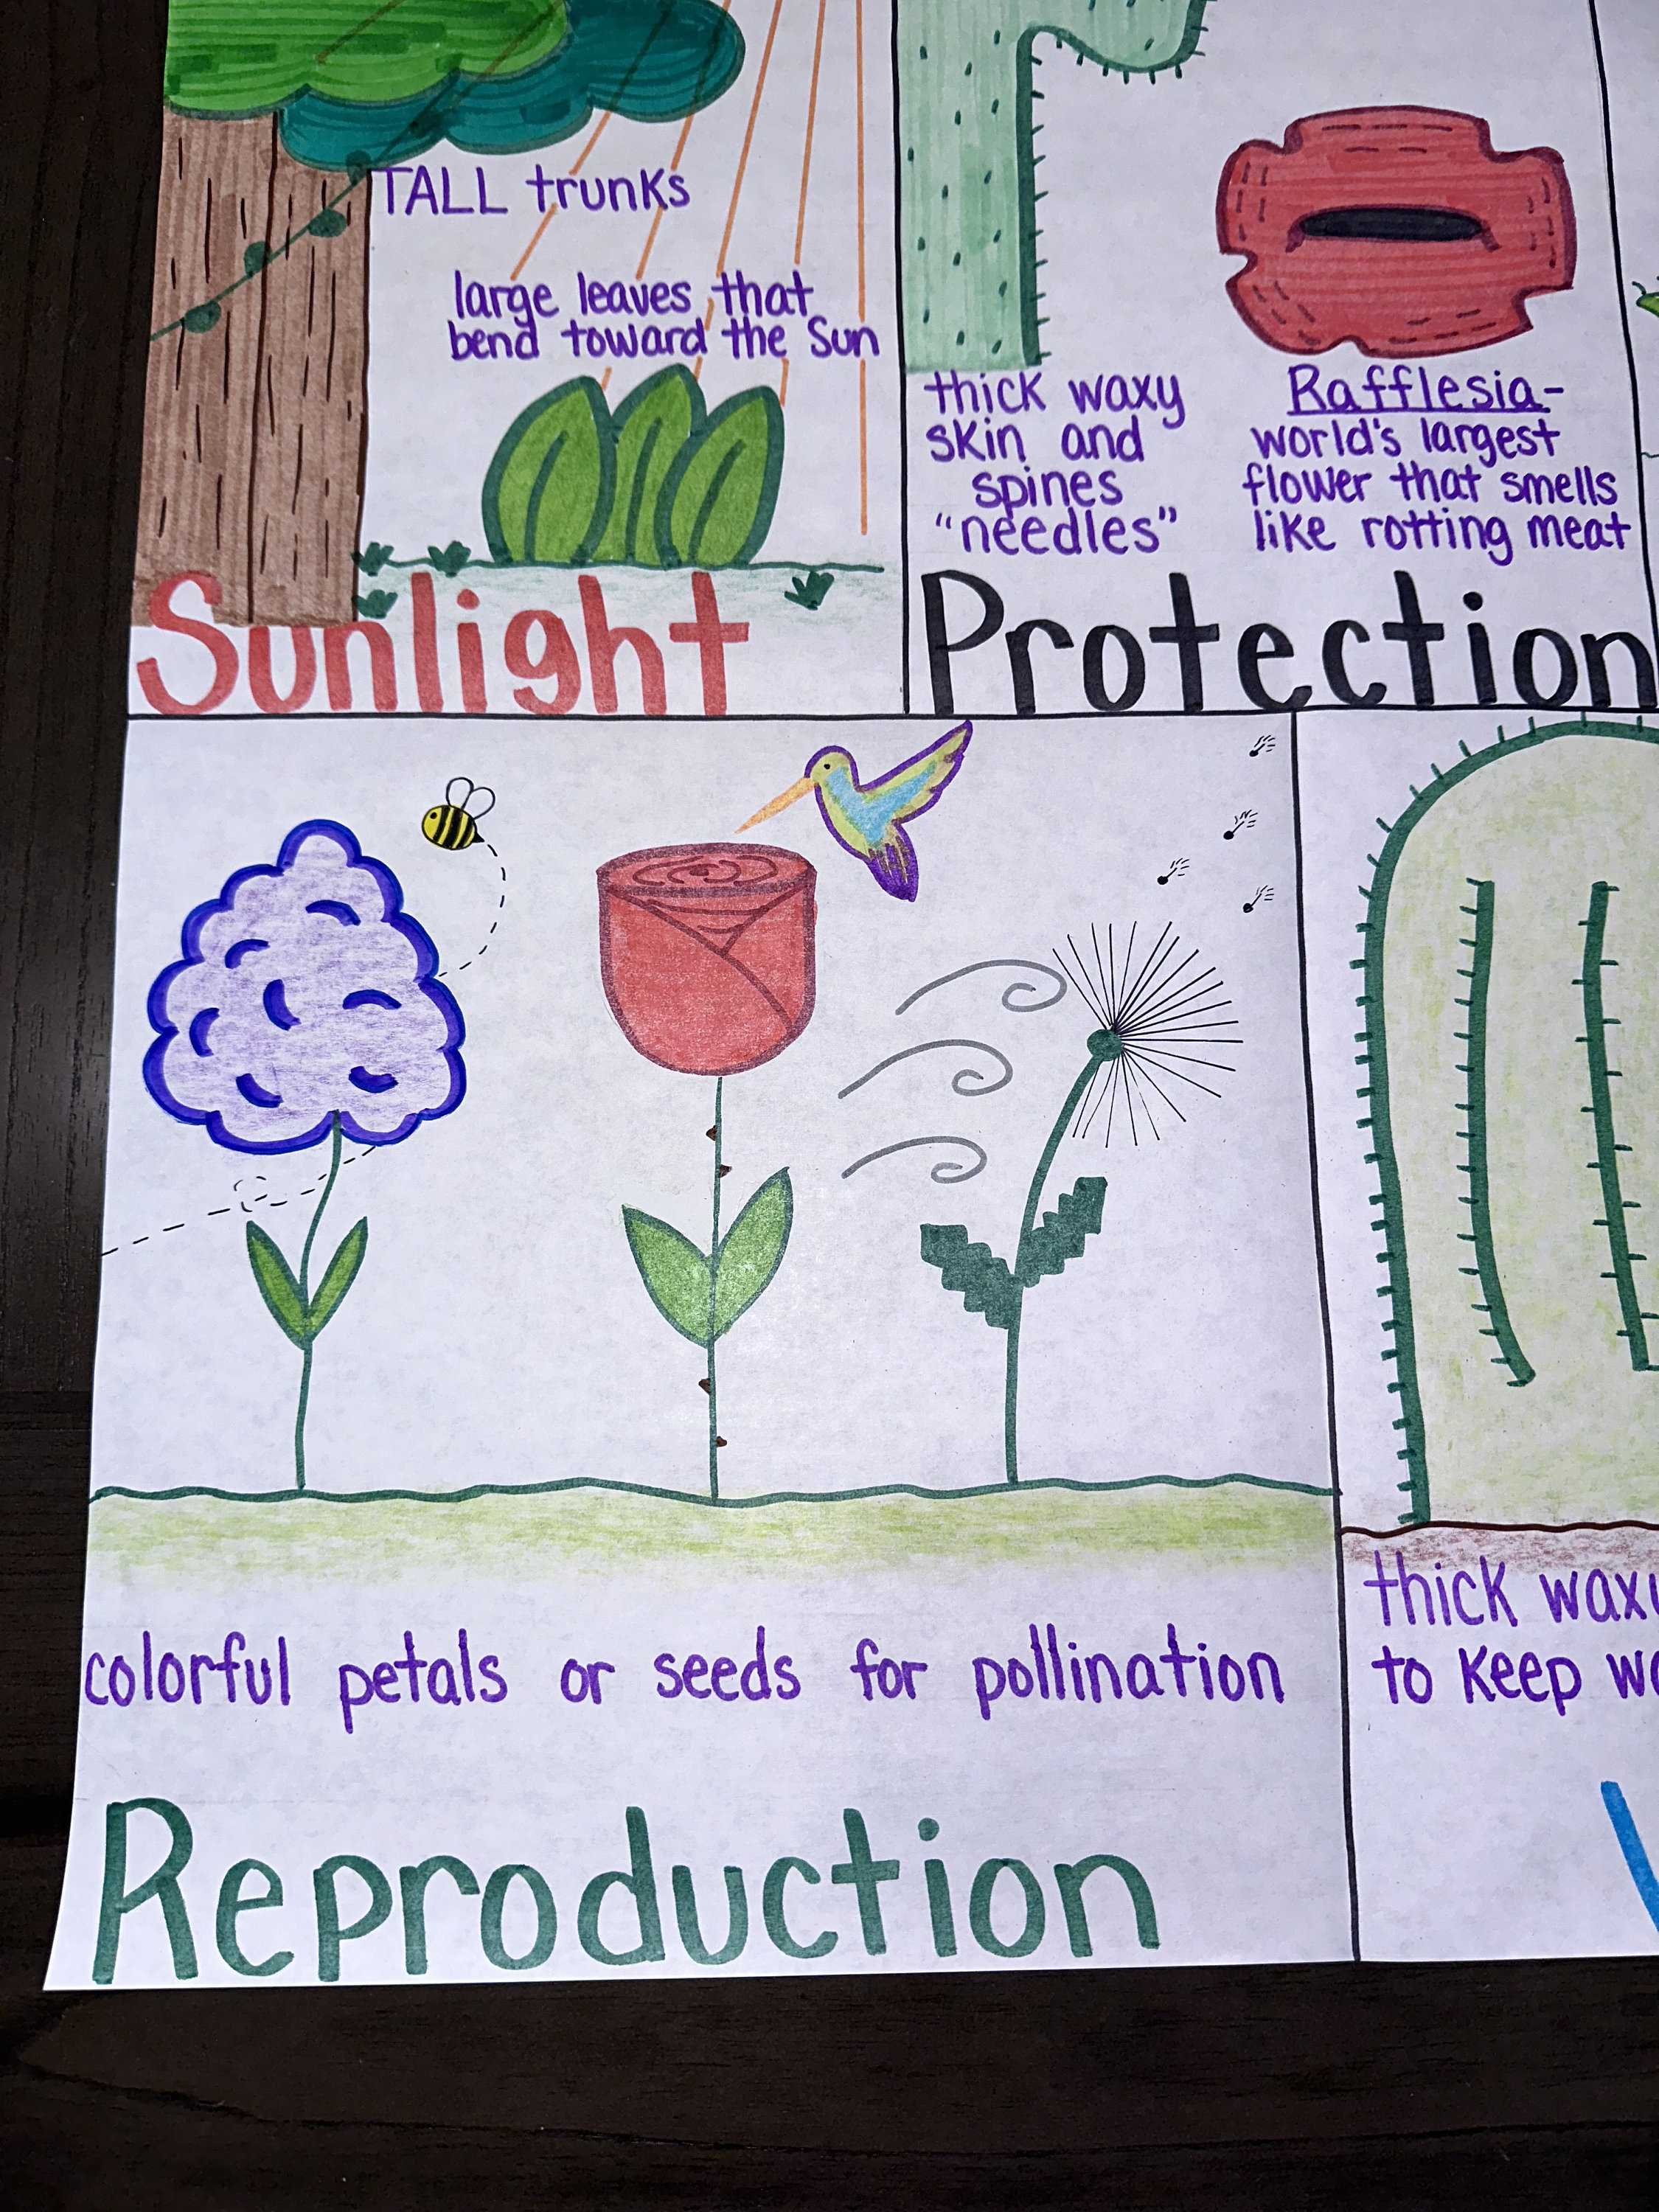 TALL trunks
large leaves that
bend toward the Sun
Sunlight
thick waxy
skin and
spines
"needles"
Rafflesia-
world's largest
flower that smells
like rotting meat
Protection
colorful petals or seeds for pollination
Reproduction
thick waxy
to keep